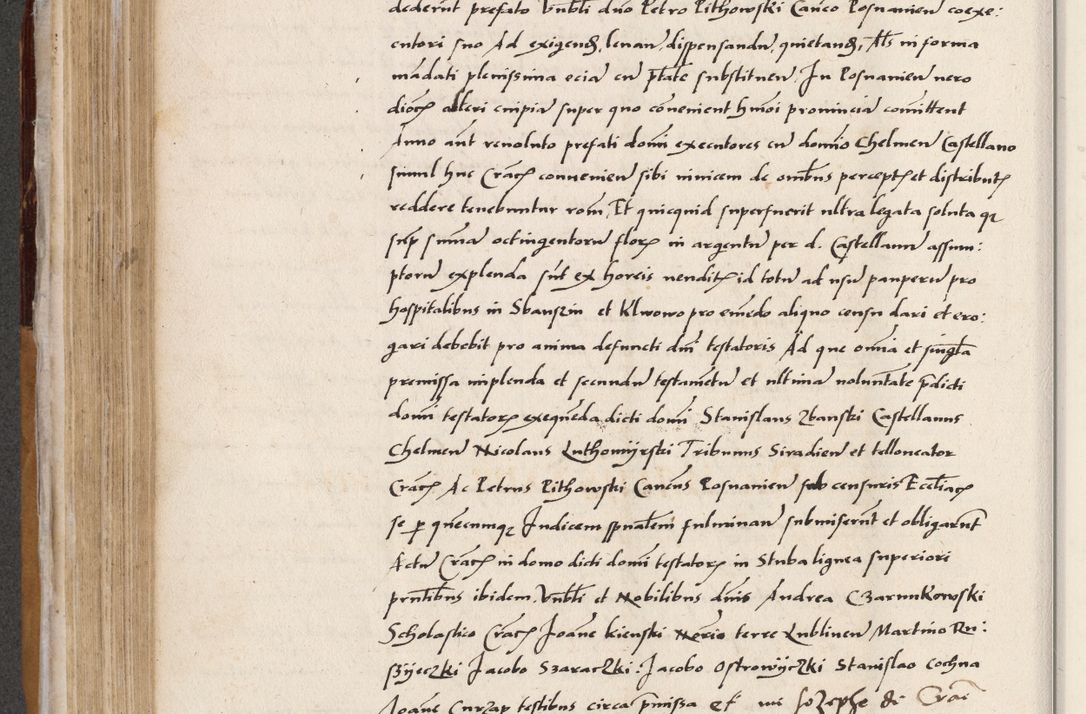 dederūt prefato Vnbłi dno Petro Pithowski Canco Posnanien̄ coexe:
cutori suo Ad exigend̄, leuan̄, dispensandū, quietand̄, Als in forma
mādati plenissima eciā cū ptāte substituen̄. In Posnanien̄ uero
dioc̄ alteri cuipiā super quo cōuenient hmōi prouinciā comittent
Anno aūt reuoluto prefati domī executores cū domīo Chelmen̄ Castellano
simul huc Crac̄ conuenien̄ sibi inuicem de omībus percept̄ et distribut̄
reddere tenebuntur rom̄, Et quicquid superfuerit ultra legata soluta q̄
sup̄ sūmā octingentorū flor̄ in argentū per d. Castellanū assum:
ptorū explenda sūt ex horeis uendit̄ id totū ad usū pauperū pro
hospitalibus in Sbanszin et Klwowo pro emēdo aliquo censu dari et ero:
gari debebit pro anima defuncti dnī testatoris Ad que omīa et singla
premissa implenda et secundū testamētū et ultimā uoluntatē p̄dicti
domī testator̄ exequēda dicti domī Stanislaus Zbanski Castellanus
Chelmen̄ Nicolaus Luthomÿrski Tribunus Siradien̄ et telloneator
Crac̄ Ac Petrus Pithowski Cancus Posnanien̄ sub censuris Eccl̄iac̄
se p̄ quēcumq̄ Iudicem spualem fulminan̄ submiserūt et obligarūt
Actū Crac̄ in domo dicti domī testator̄ in Stuba lignea superiori
prn̄tibus ibidem Vnbłi et Nobilibus dnis Andrea Czarnkowski
Scholastico Crac̄ Ioāne Kienski Notrio terre Lublinen̄ Martino Ru:
szÿeczki Iacobo Szaraczki: Iacobo Ostrowÿczki Stanislao Cochna
Ioāne Curzap testibus circa p̄missa Et mi Iozephe di Croī